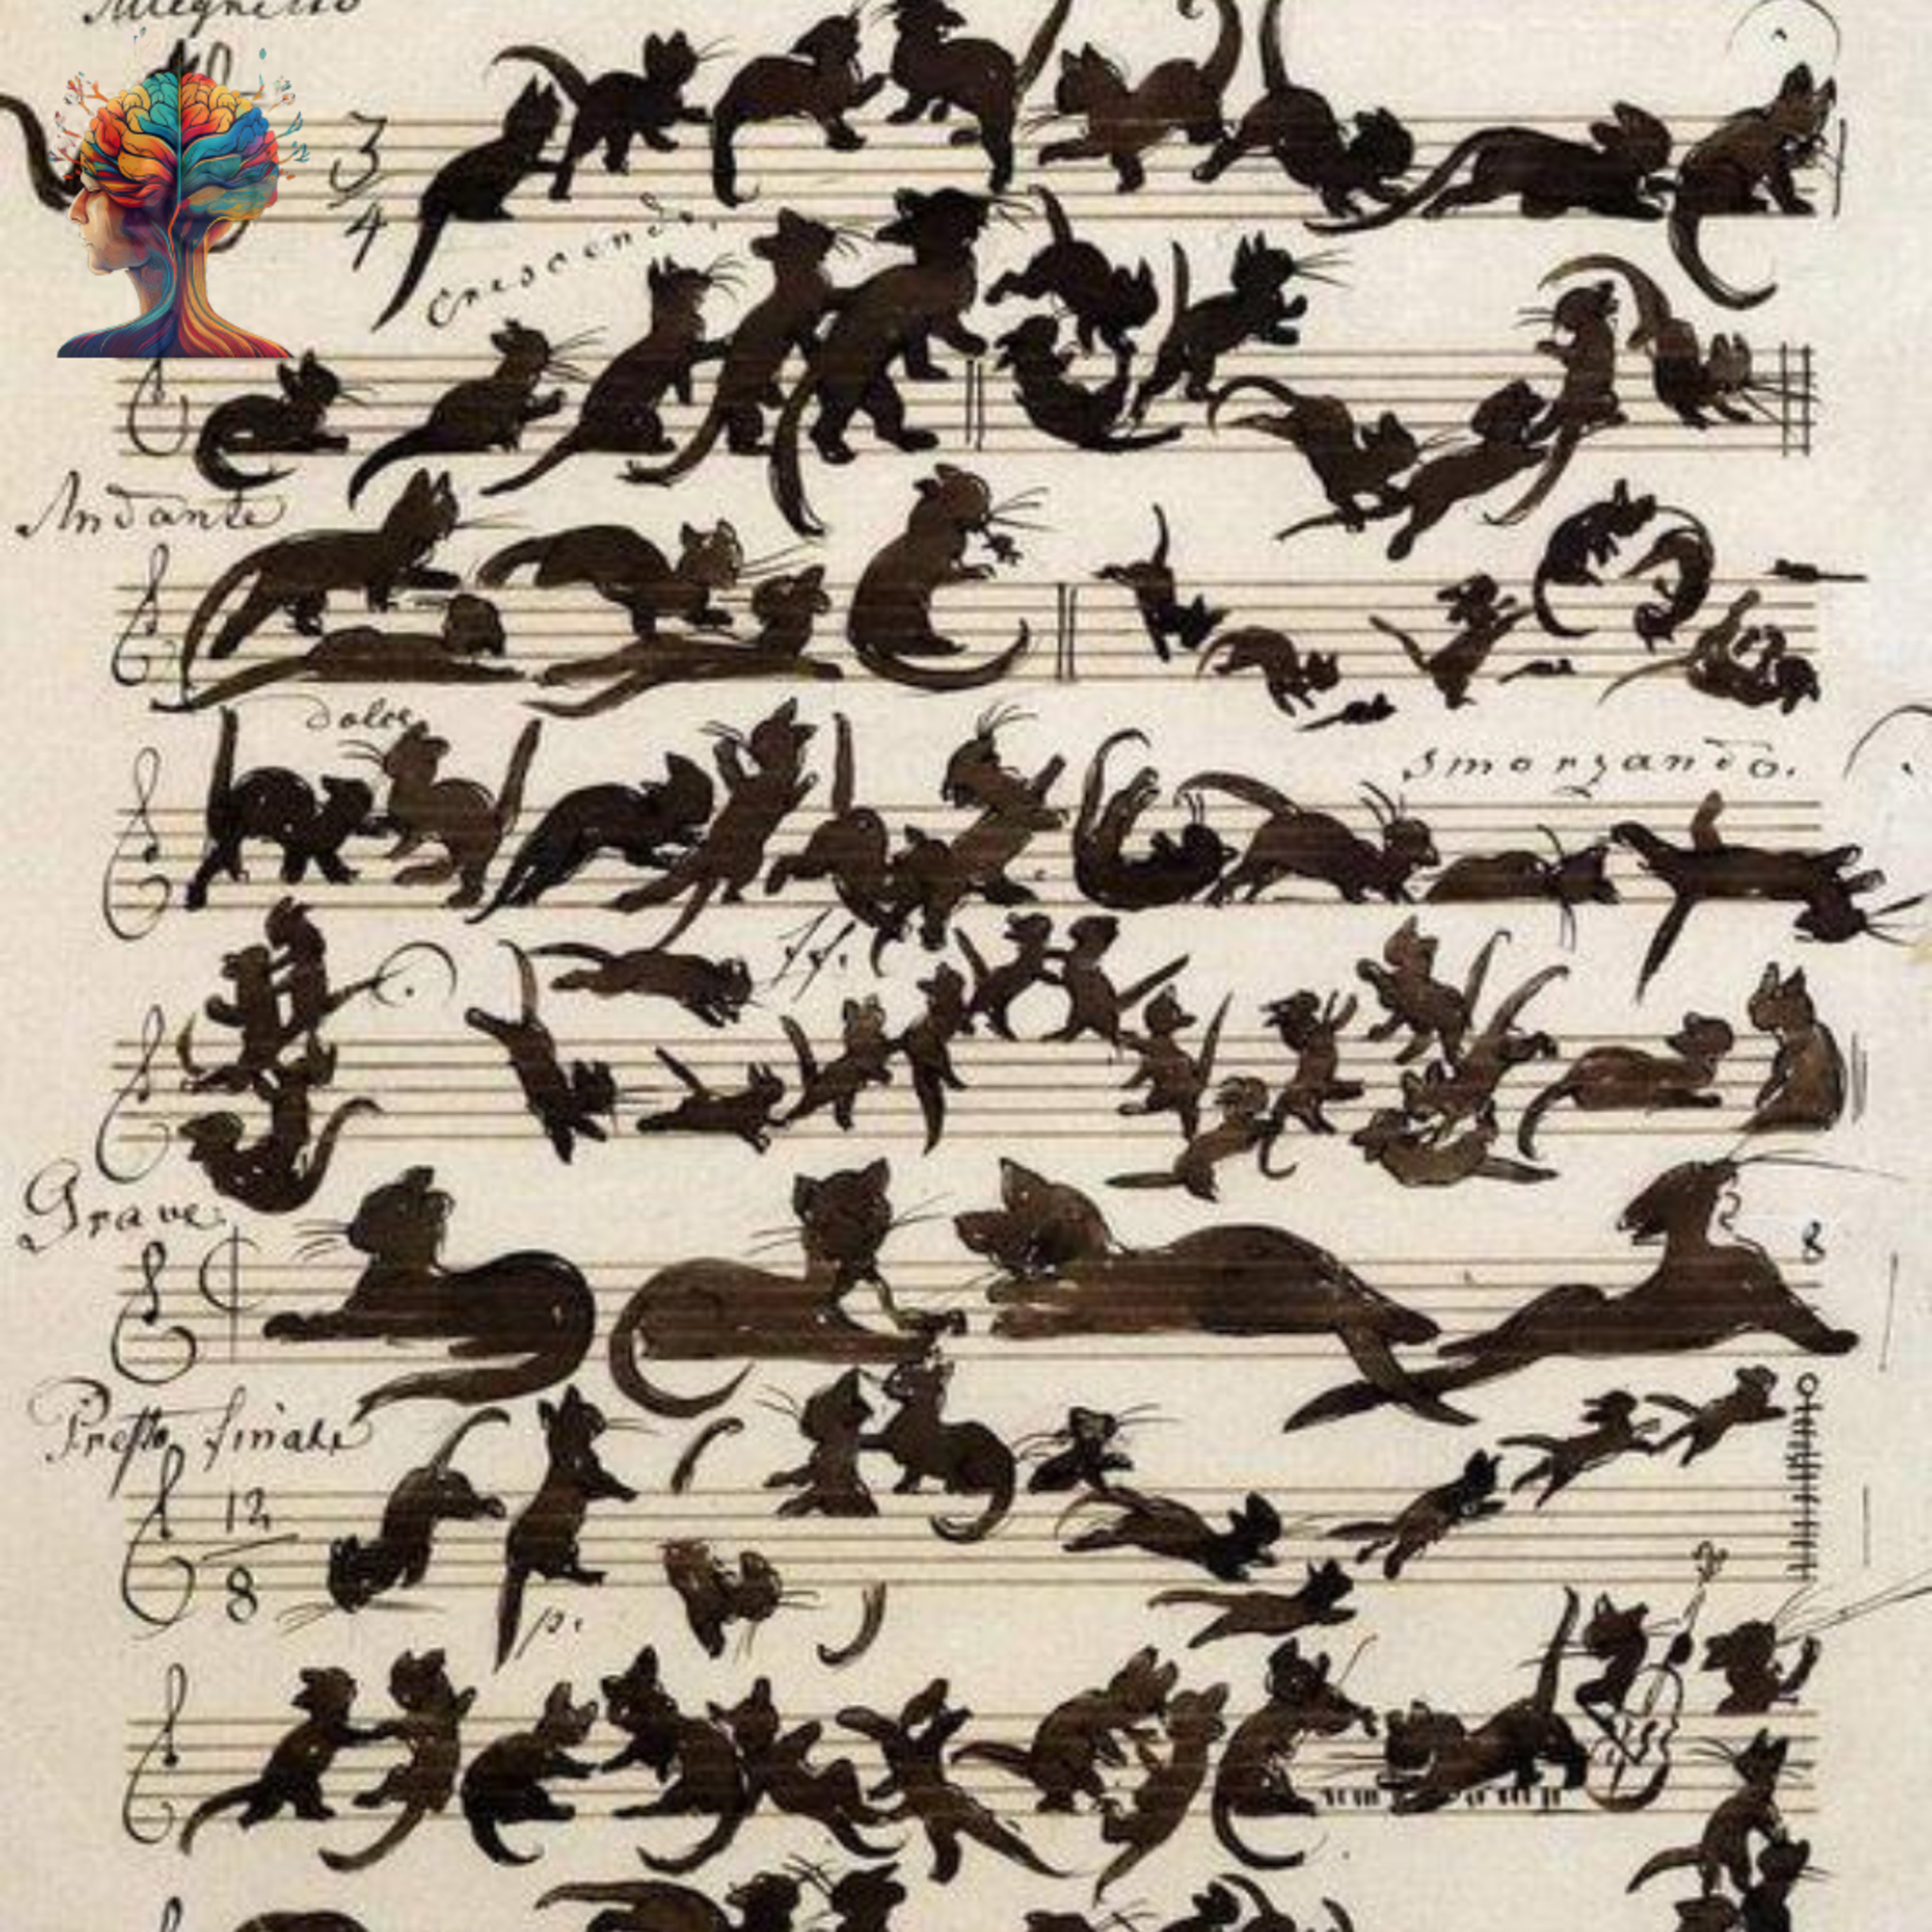 3
4
crescendo,
Andante
dolce
smorzando.
ff.
Grave.
8
Presto finale
12
8
p.